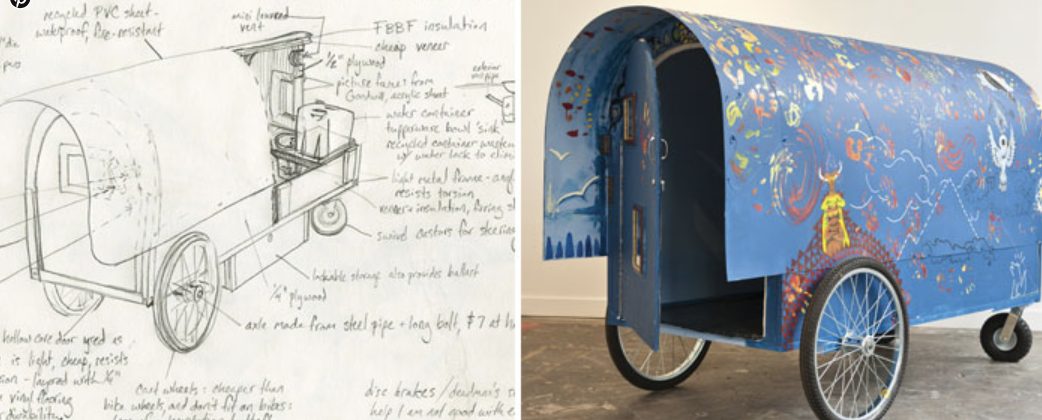 recycled PVC sheet-
waterproof, fire-resistant
mini louvred
vent
FBBF insulation
cheap veneer
1/2" plywood
picture frames from
Goodwill, acrylic sheet
exterior
water container
tupperware bowl 'sink'
recycled container
w/ water lock to
light metal frame -
resists torsion
veneer insulation, facing
swivel castors for steering
lockable storage also provides ballast
1/4" plywood
axle made from steel pipe + long bolt, $7 at
hollow core door used as
is light, cheap, resists
layered with 1/4"
vinyl flooring
durability
cart wheels: cheaper than
bike wheels, and don't fit on bikes:
disc brakes / deadman's
help I am not good with